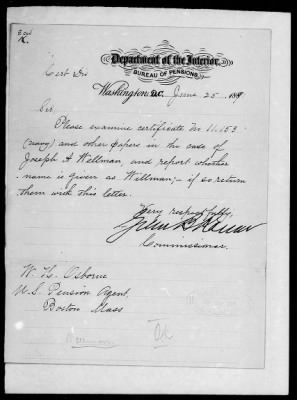 Department of the Interior,
BUREAU OF PENSIONS,
Washington D.C. June 25 188
Sir,
Please examine certificate No 11.153
(navy) and other papers in the case of
Joseph A Wellman, and report whether
name is given as Willman;– if so return
them with this letter.
Very respectfully,
Commissioner.
W. H. Osborne
U.S. Pension Agent,
Boston Mass